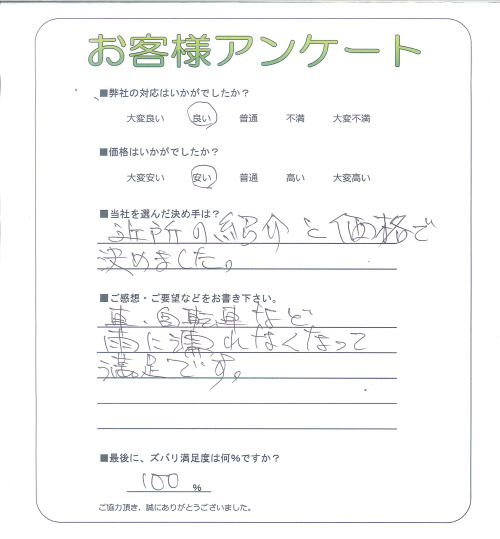 お客様アンケート
■弊社の対応はいかがでしたか？
大変良い 良い 普通 不満 大変不満
■価格はいかがでしたか？
大変安い 安い 普通 高い 大変高い
■当社を選んだ決め手は？
近所の紹介と価格で
決めました。
■ご感想・ご要望などをお書き下さい。
車、自転車など
雨に濡れなくなって
満足です。
■最後に、ズバリ満足度は何%ですか？
100 %
ご協力頂き、誠にありがとうございました。